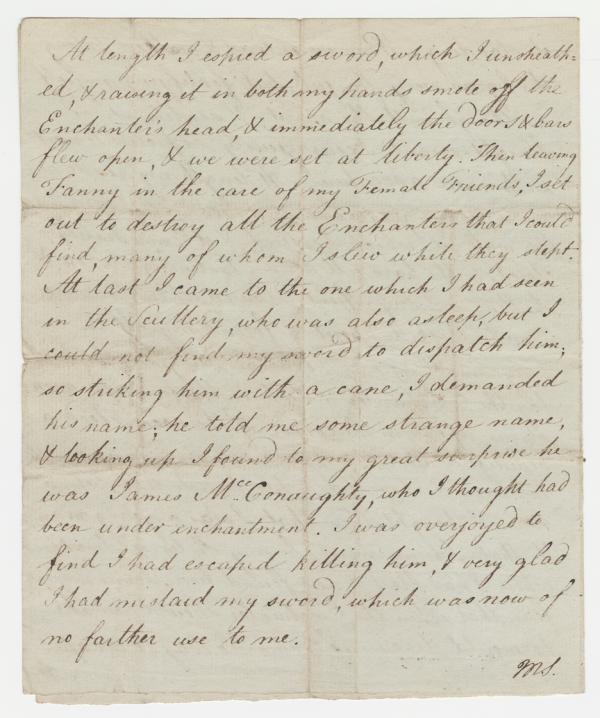 At length I espied a sword, which I unsheath=
ed, & raising it in both my hands smote off the
Enchanter's head, & immediately the doors & bars
flew open, & we were set at liberty. Then leaving
Fanny in the care of my Female Friends, I set
out to destroy all the Enchanters that I could
find, many of whom I slew while they slept.
At last I came to the one which I had seen
in the Scullery, who was also asleep, but I
could not find my sword to dispatch him;
so striking him with a cane, I demanded
his name; he told me some strange name,
& looking up I found to my great surprise he
was James Mc.Conaughty, who I thought had
been under enchantment. I was overjoyed to
find I had escaped killing him, & very glad
I had mislaid my sword, which was now of
no farther use to me.
MS.